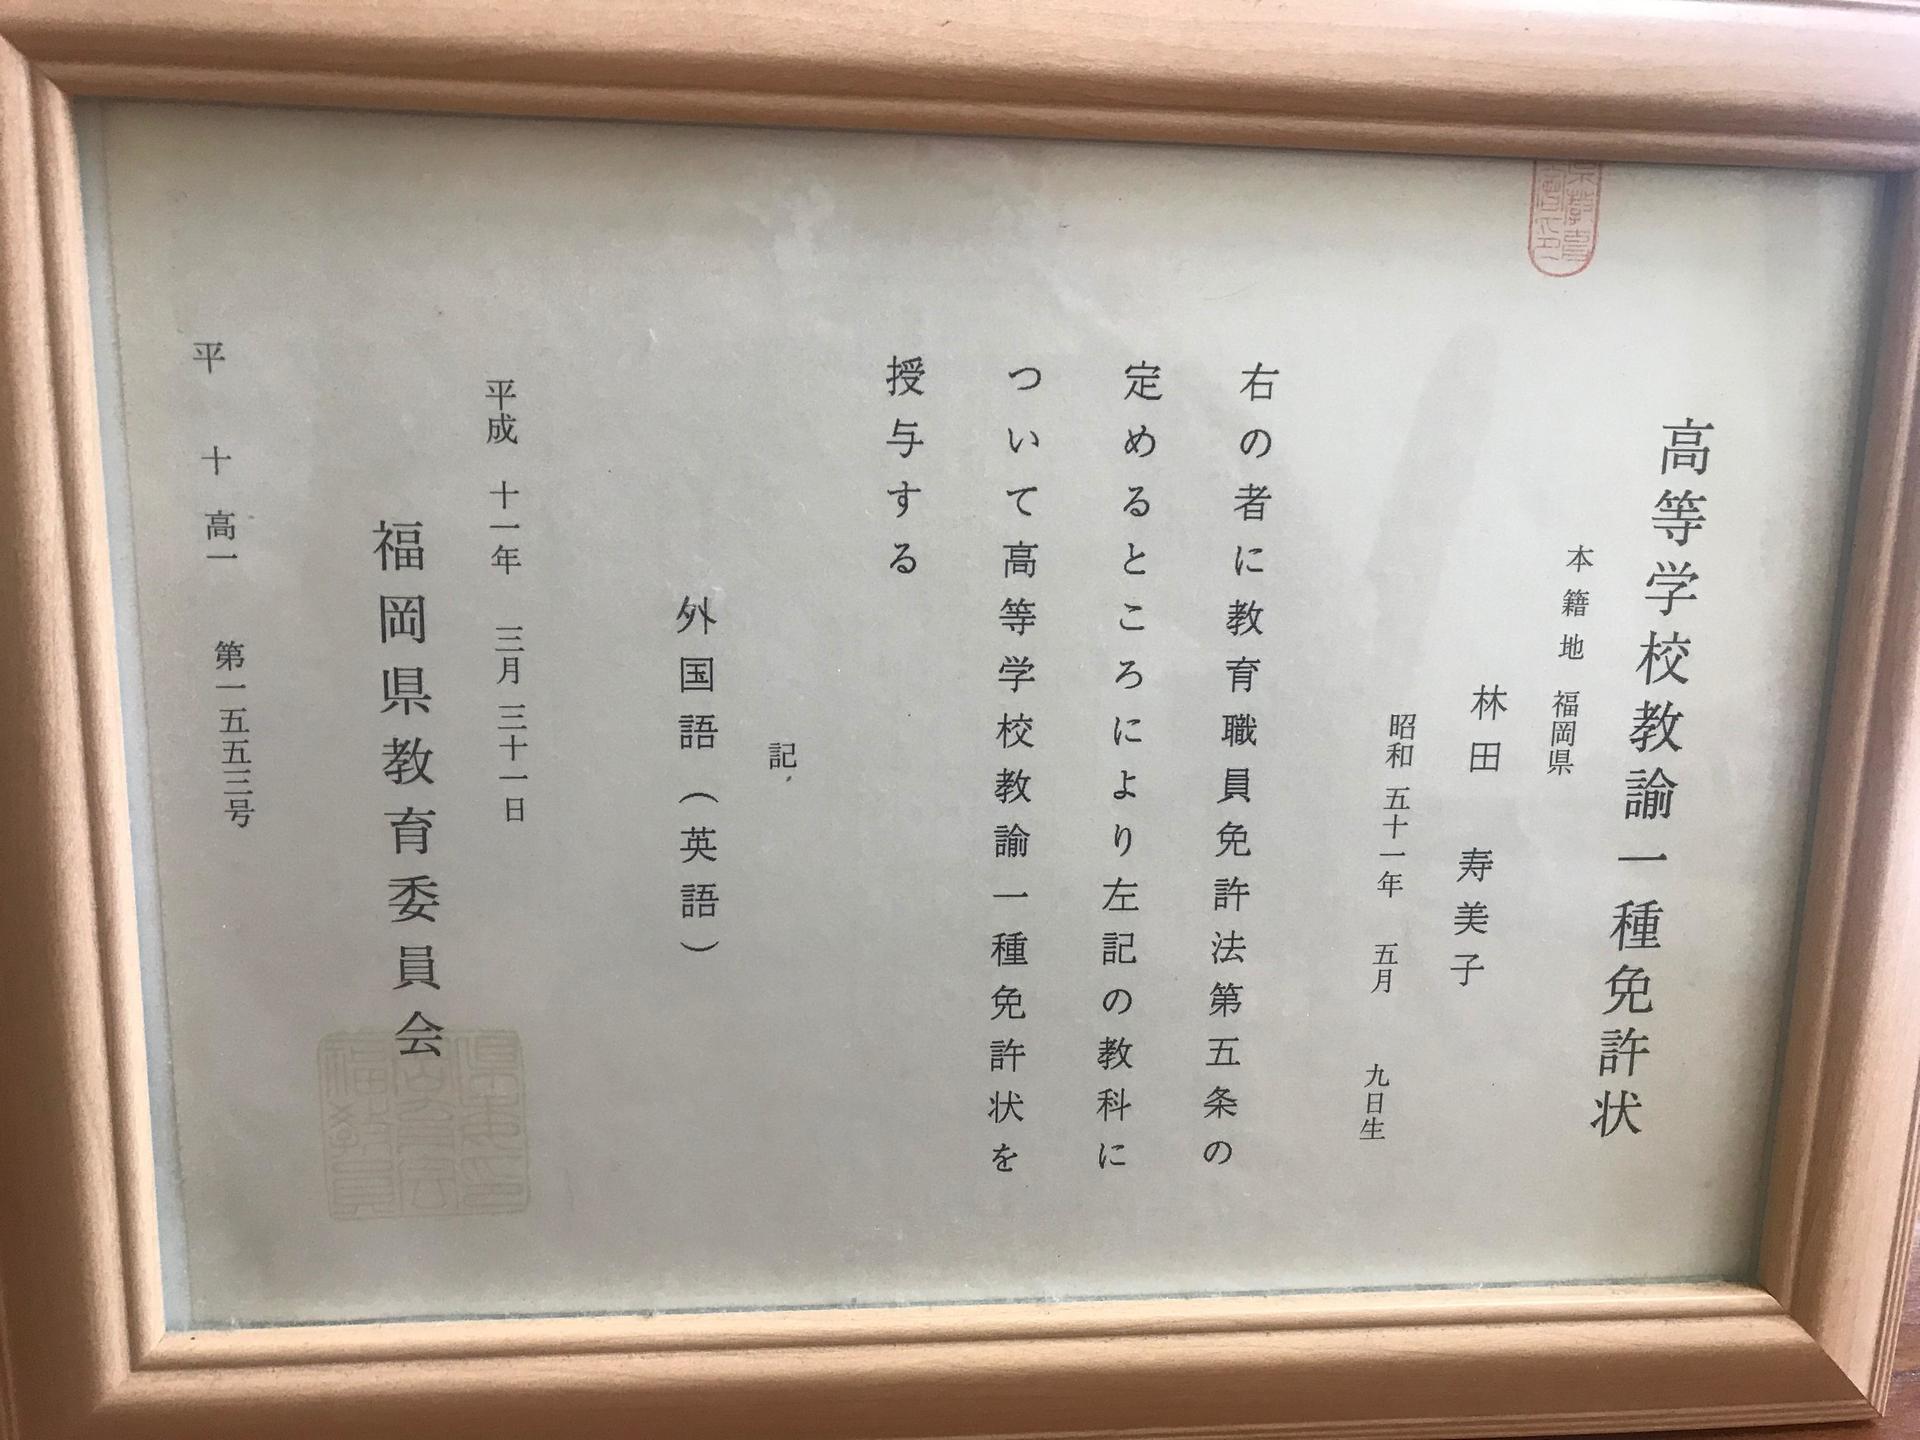 高等学校教諭一種免許状
本籍地 福岡県
林田 寿美子
昭和 五十一年 五月 九日生
右の者に教育職員免許法第五条の
定めるところにより左記の教科に
ついて高等学校教諭一種免許状を
授与する
記
外国語(英語)
平成 十一年 三月 三十一日
福岡県教育委員会
平 十 高一 第一五五三号